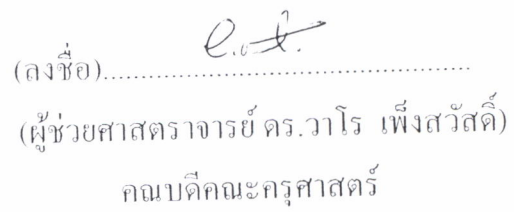 (ลงชื่อ)..................................................
(ผู้ช่วยศาสตราจารย์ ดร.วาโร เพ็งสวัสดิ์)
คณบดีคณะครุศาสตร์